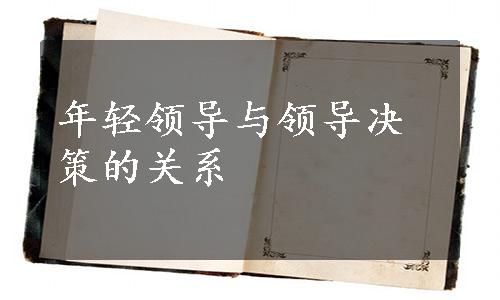 年轻领导与领导决
策的关系